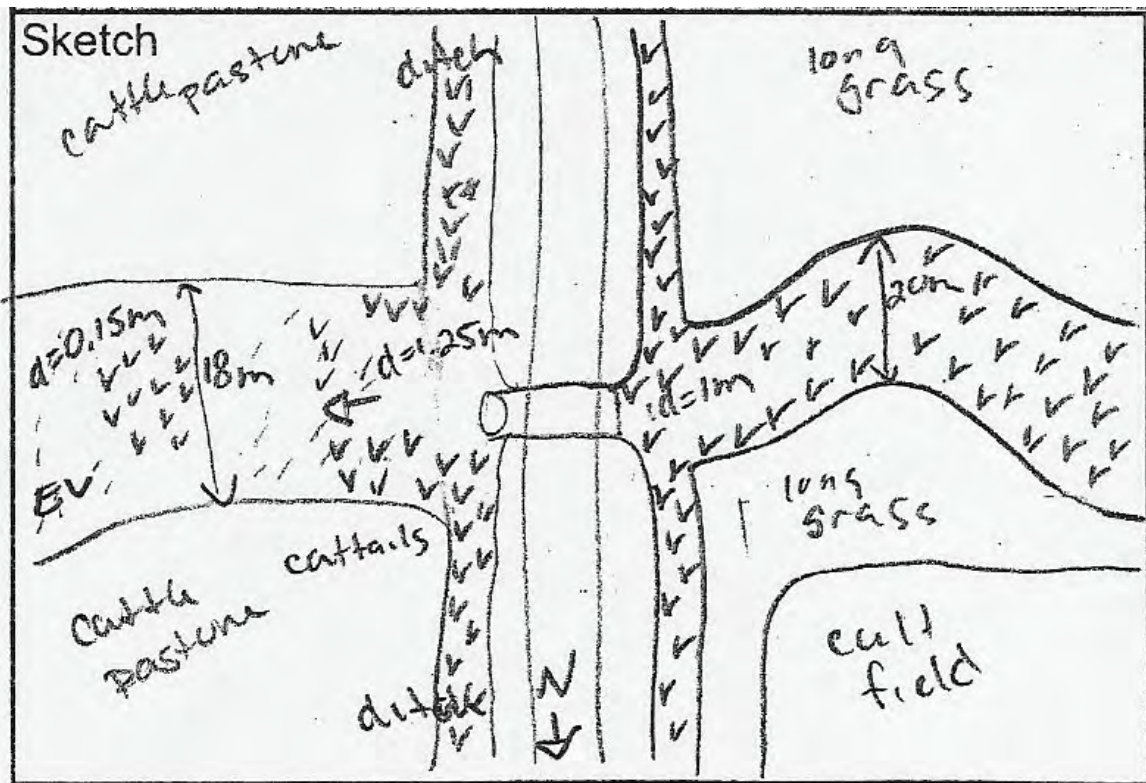 Sketch
cattle pasture
ditch
long
grass
d=0.15m
18m
d=1.25m
d=1m
20m
EV
cattails
long
grass
cattle
pasture
ditch
N
cult
field